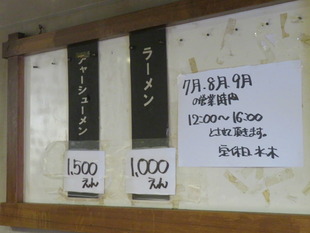 チャーシューメン
1,500
えん
ラーメン
1,000
えん
7月.8月.9月
の営業時間
12:00〜16:00
とさせて頂きます。
定休日 水木